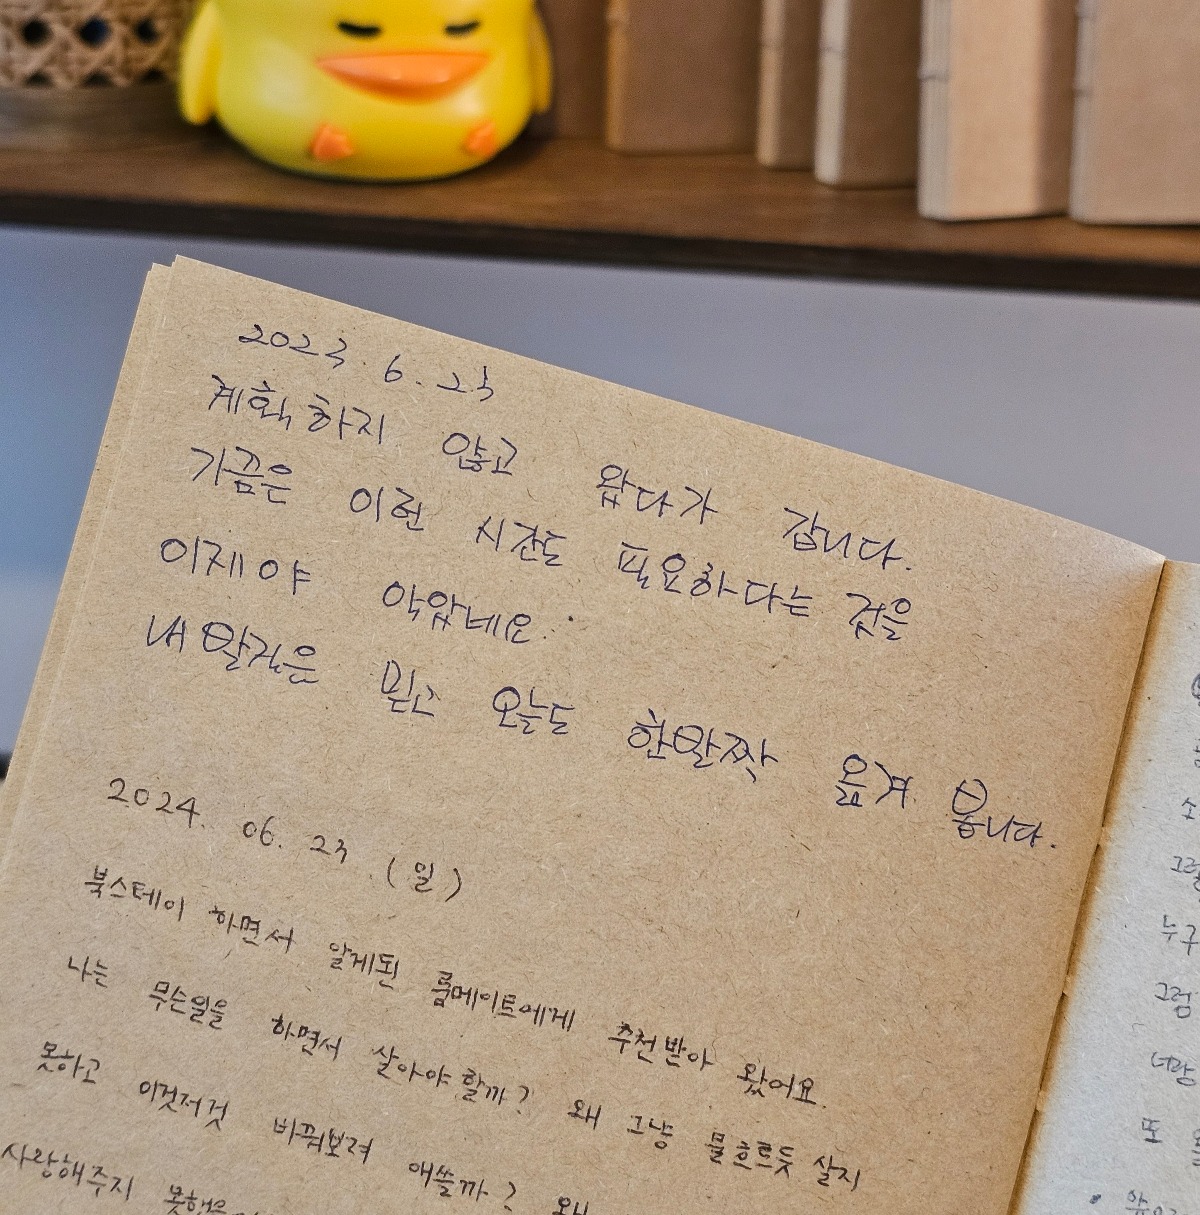 2023. 6. 23
계획하지 않고 왔다가 갑니다.
가끔은 이런 시간도 필요하다는 것을
이제야 알았네요.
내 발걸음을 믿고 오늘도 한발짝 옮겨 봅니다.
2024. 06. 23 (일)
북스테이 하면서 알게된 룸메이트에게 추천받아 왔어요.
나는 무슨일을 하면서 살아야 할까? 왜 그냥 물흐르듯 살지
못하고 이것저것 바꿔보려 애쓸까? 왜
사랑해주지
소
누구
그럼
너랑
또